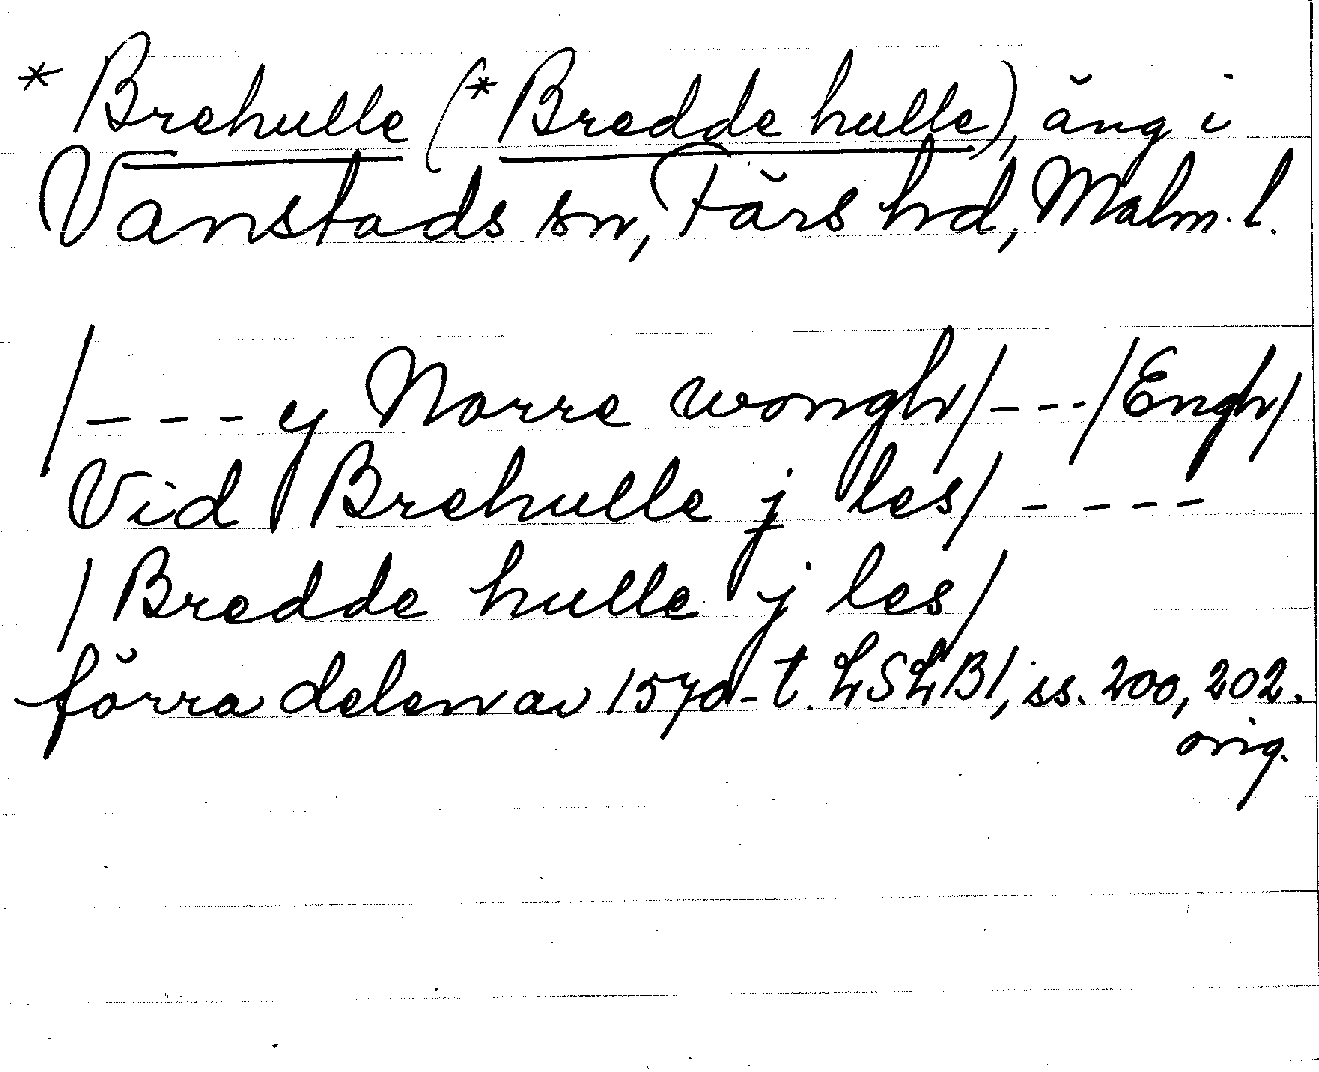 * Brehulle (* Bredde hulle), äng i
Vanstads sn, Färs hd, Malm. l.
/- - - y Norre wongh/- - -/Engh/
Vid Brehulle j les/ - - - -
/Bredde hulle j les/
förra delen av 1570-t. LSLB1, ss. 200, 202.
orig.